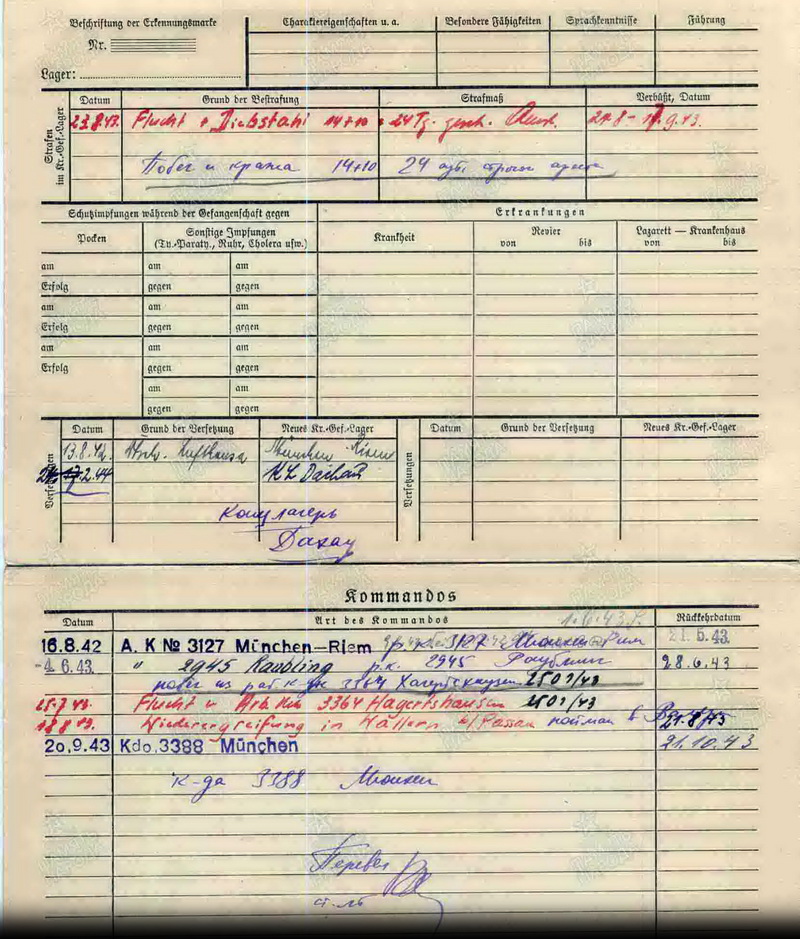 Beschriftung der Erkennungsmarke
Nr.
Lager:
Charaktereigenschaften u. a.
Besondere Fähigkeiten
Sprachkenntnisse
Führung
Strafen im Kr.-Gef.-Lager
Datum
Grund der Bestrafung
Strafmaß
Verbüßt, Datum
23.8.43. Flucht + Diebstahl 14+10 = 24 Tg. gesch. Arrest. 21.8 - 9.43.
Побег и кража 14+10 24 строгого ареста
Schutzimpfungen während der Gefangenschaft gegen
Erkrankungen
Pocken
Sonstige Impfungen
(Ty.-Paraty., Ruhr, Cholera usw.)
Krankheit
Revier
von bis
Lazarett — Krankenhaus
von bis
am am am
Erfolg gegen gegen
am am am
Erfolg gegen gegen
am am am
Erfolg gegen gegen
am am
gegen gegen
Versetzungen
Datum
Grund der Versetzung
Neues Kr.-Gef.-Lager
Versetzungen
Datum
Grund der Versetzung
Neues Kr.-Gef.-Lager
13.8.42. Lufthansa München Riem
2.44 KL Dachau
Концлагерь
Дахау
Kommandos
Datum
Art des Kommandos
1.6.43
Rückkehrdatum
16.8.42 A. K № 3127 München-Riem р.к. 3127 Мюнхен Рим 21.5.43.
-4. 6.43. " 2945 Raubling р.к. 2945 Раублинг 28.6.43
побег из раб. к-ды 3364 Хагертсхаузен 2507/43
25.7.43. Flucht v. Arb. Kdo 3364 Hagertshausen 2507/43
18.8.43. Wiederergreifung in Passau пойман в 21.8/43
20.9.43 Kdo.3388 München 21.10.43
к-да 3388 Мюнхен
Перевел
ст. л-т